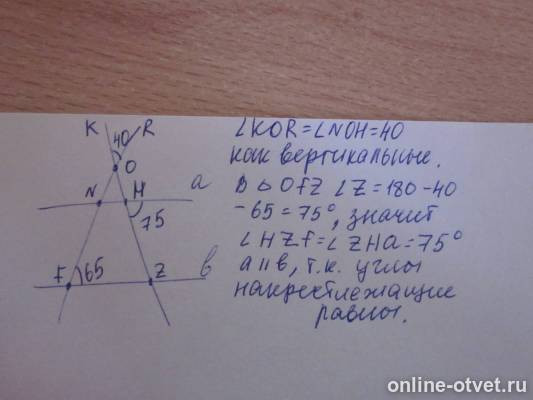 K 40 R
O
N H a
75
F 65 Z в
∠KOR=∠NOH=40
как вертикальные.
В △ OFZ ∠Z=180-40
-65=75°, значит
∠HZF=∠ZHa=75°
a||в, т.к. углы
накрестлежащие
равны.
online-otvet.ru